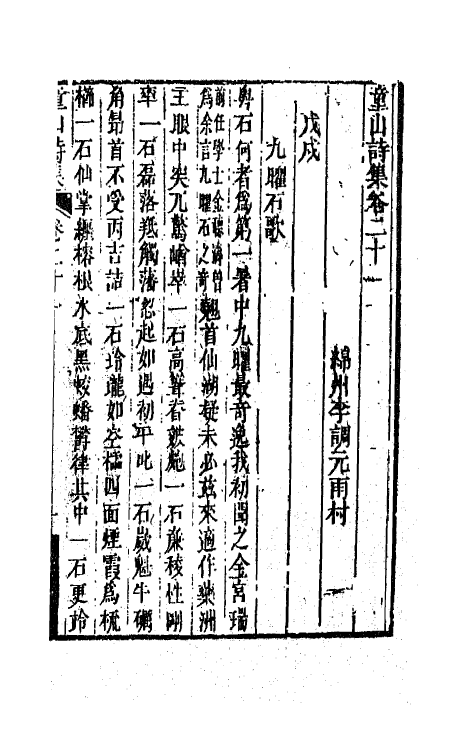 童山詩集卷二十一
綿州李調元雨村
戊戌
九曜石歌
粤石何者爲第一署中九曜最奇逸我初聞之金宮瑞
前任學士金聽濤曾
爲余言九曜石之奇
翹首仙湖疑未必玆來適作藥洲
主眼中突兀驚崷崒一石高聳皴一石廉稜性剛
率一石磊落羝觸藩忽起如遇初平叱一石魁牛礪
角昂首不受丙吉詰一石玲瓏如空櫺四面煙霞爲梳
櫛一石仙掌纏榕根水底黑蛟蟠鬱律其中一石更玲
童山詩集 卷二十一 一